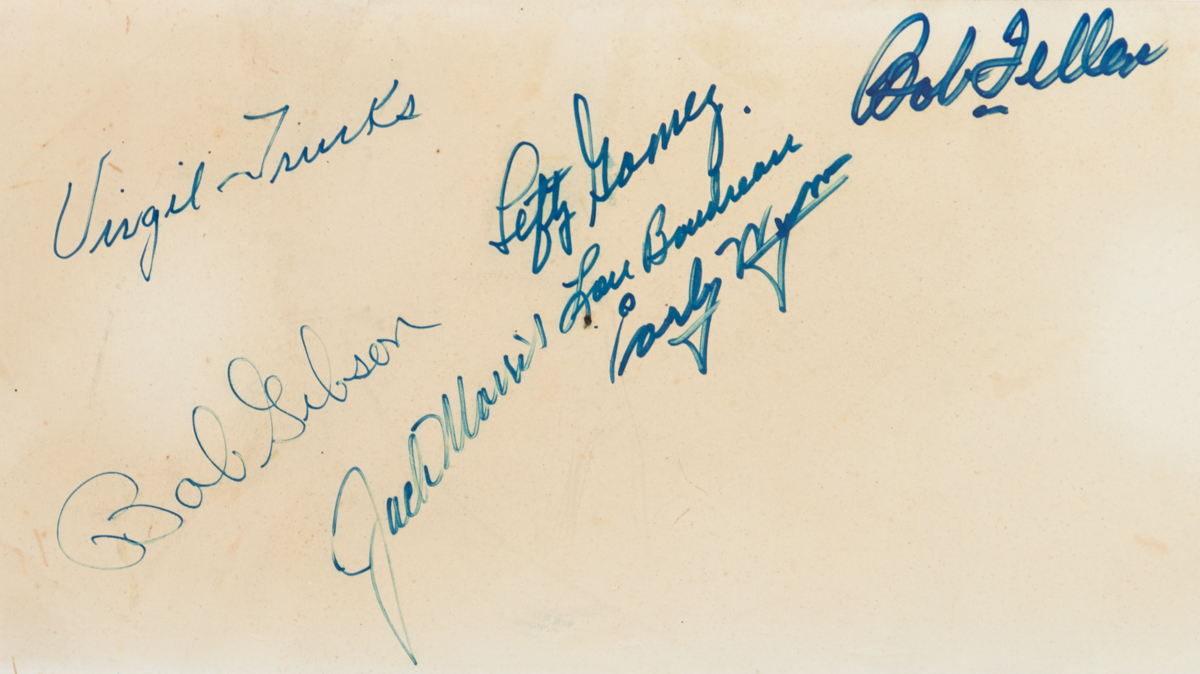 Bob Feller
Virgil Trucks
Lefty Gomez
Lou Boudreau
Early Wynn
Bob Gibson
Jack Morris